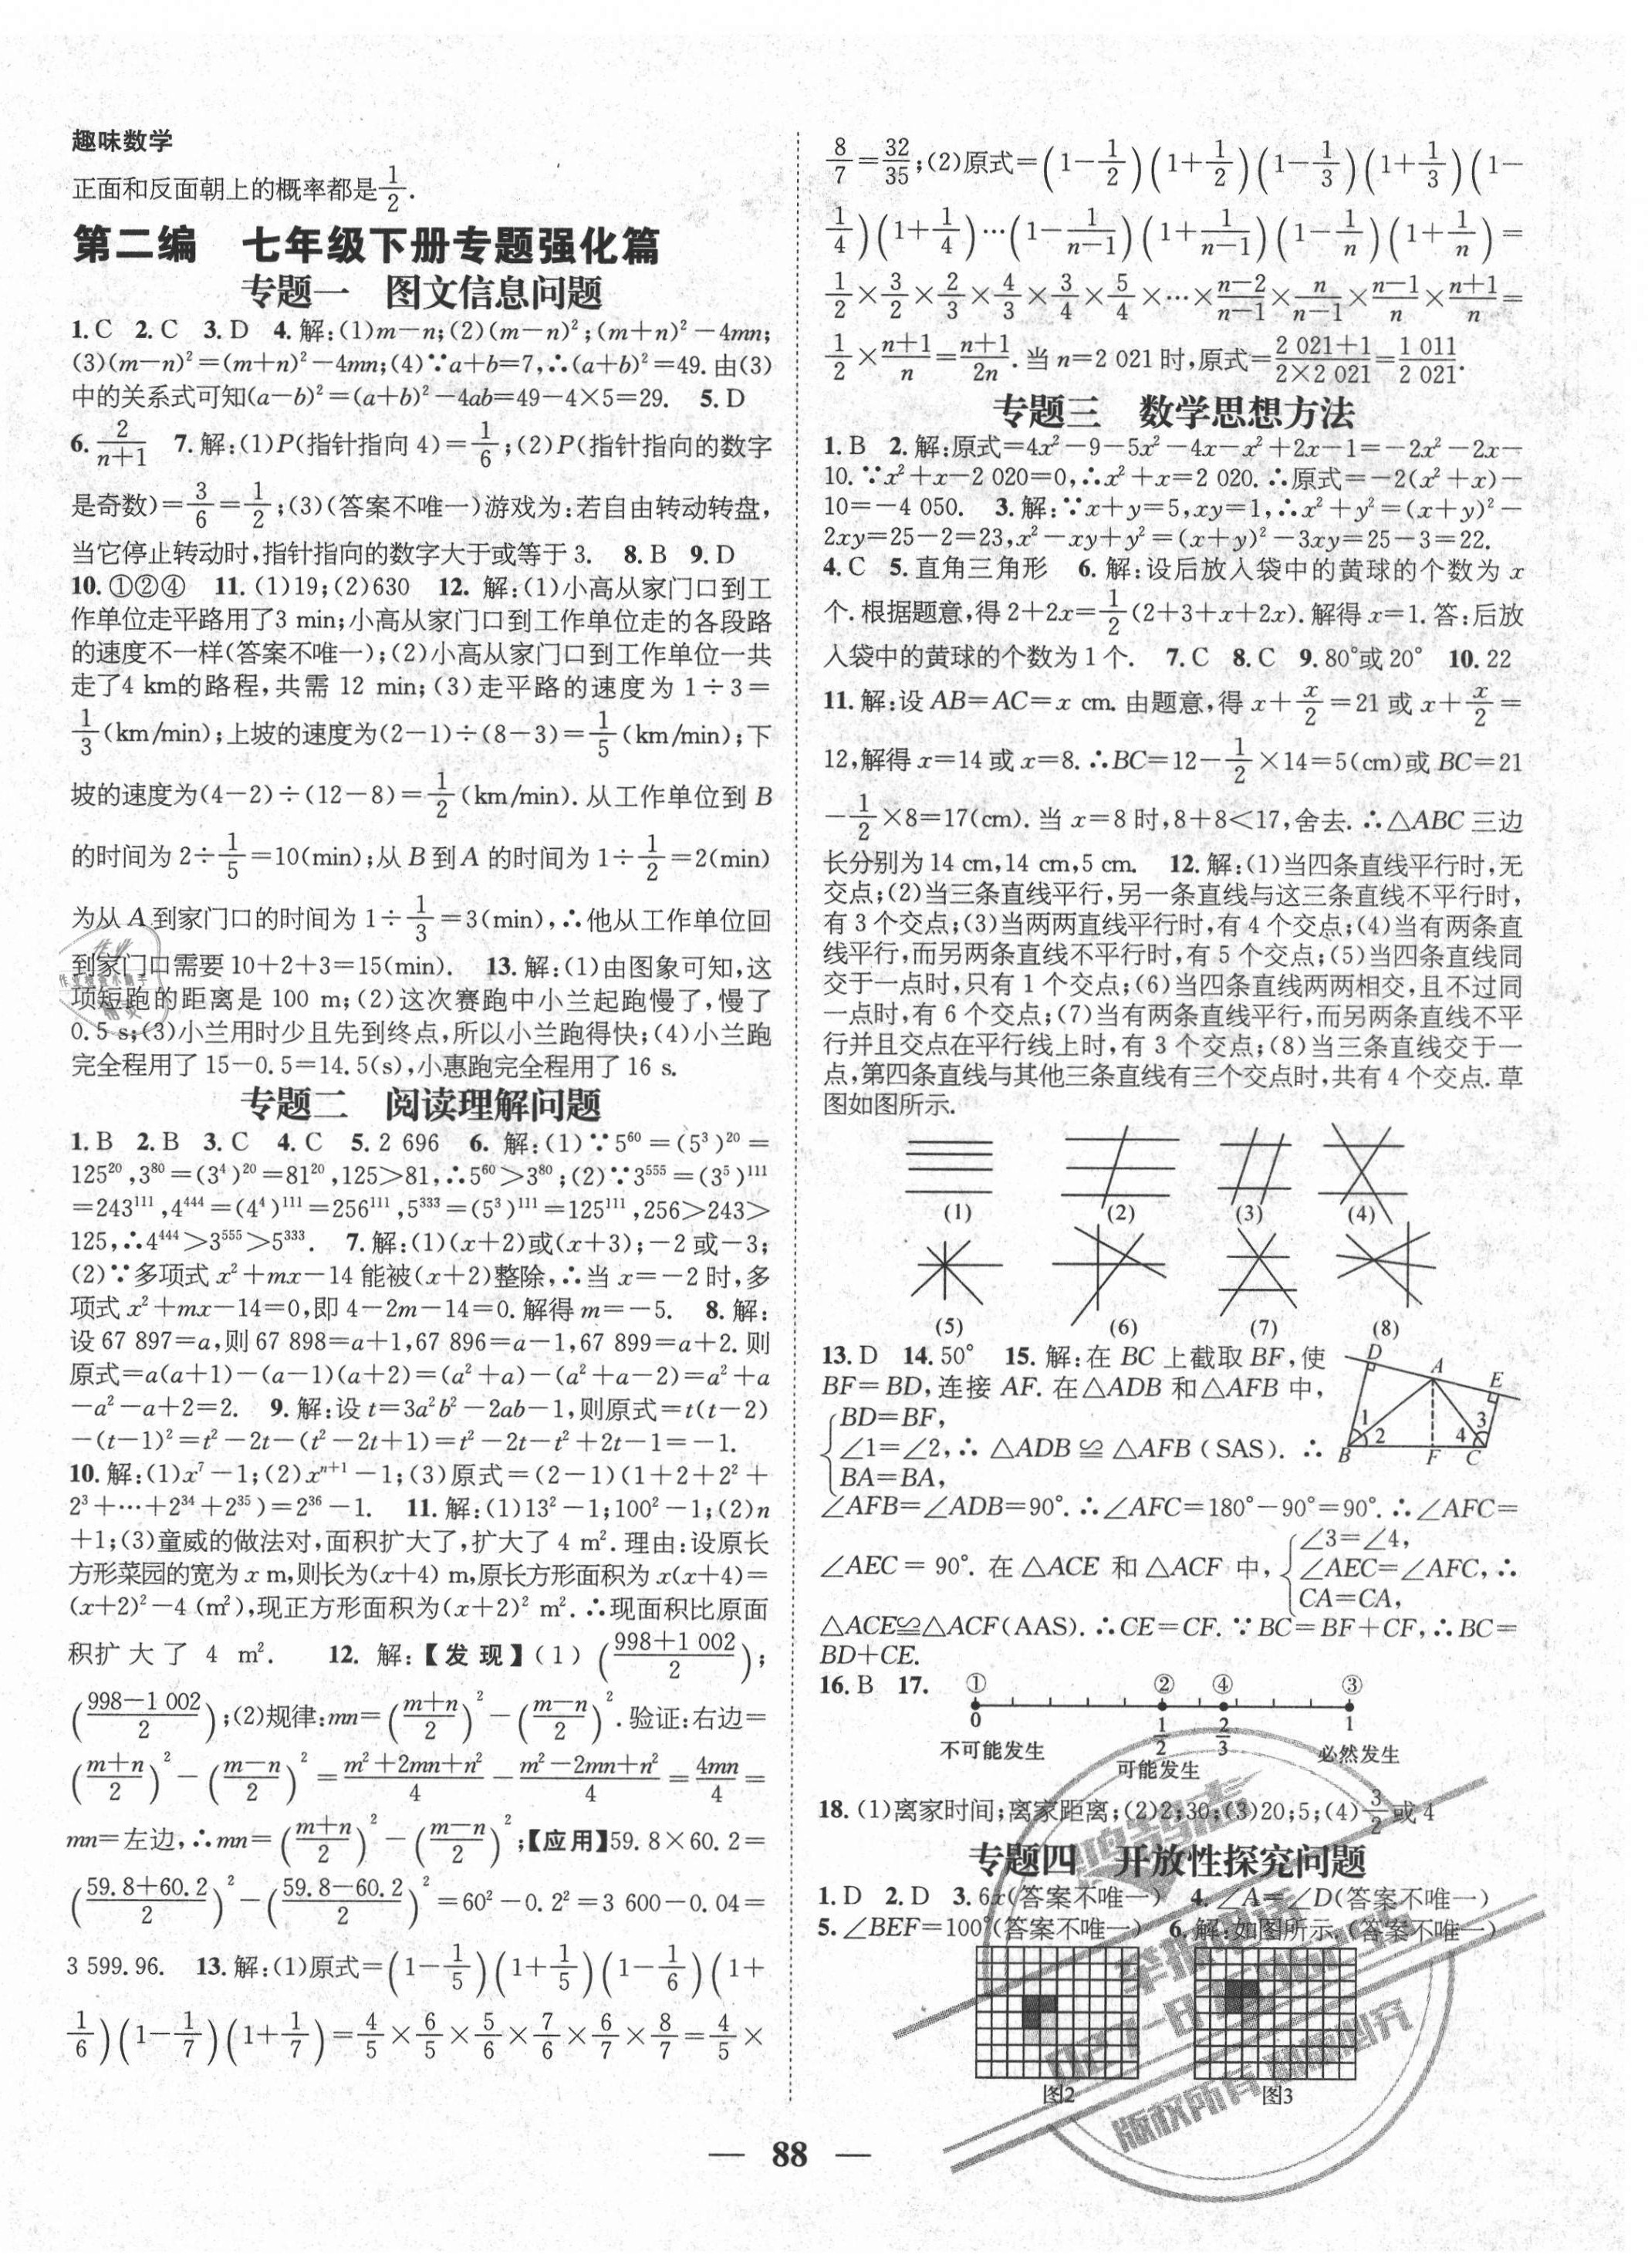 趣味数学
正面和反面朝上的概率都是1/2.
第二编 七年级下册专题强化篇
专题一 图文信息问题
1.C 2.C 3.D 4.解:(1)m－n;(2)(m－n)²;(m＋n)²－4mn;
(3)(m－n)²＝(m＋n)²－4mn;(4)∵a＋b＝7,∴(a＋b)²＝49.由(3)
中的关系式可知(a－b)²＝(a＋b)²－4ab＝49－4×5＝29. 5.D
6. 2/(n＋1) 7.解:(1)P(指针指向4)＝1/6;(2)P(指针指向的数字
是奇数)＝3/6＝1/2;(3)(答案不唯一)游戏为:若自由转动转盘,
当它停止转动时,指针指向的数字大于或等于3. 8.B 9.D
10.①②④ 11.(1)19;(2)630 12.解:(1)小高从家门口到工
作单位走平路用了3 min;小高从家门口到工作单位走的各段路
的速度不一样(答案不唯一);(2)小高从家门口到工作单位一共
走了4 km的路程,共需 12 min;(3)走平路的速度为 1÷3＝
1/3(km/min);上坡的速度为(2－1)÷(8－3)＝1/5(km/min);下
坡的速度为(4－2)÷(12－8)＝1/2(km/min).从工作单位到B
的时间为2÷1/5＝10(min);从B到A的时间为1÷1/2＝2(min)
为从A到家门口的时间为1÷1/3＝3(min),∴他从工作单位回
到家门口需要10＋2＋3＝15(min). 13.解:(1)由图象可知,这
项短跑的距离是 100 m;(2)这次赛跑中小兰起跑慢了,慢了
0.5 s;(3)小兰用时少且先到终点,所以小兰跑得快;(4)小兰跑
完全程用了15－0.5＝14.5(s),小惠跑完全程用了16 s.
专题二 阅读理解问题
1.B 2.B 3.C 4.C 5.2 696 6.解:(1)∵5⁶⁰＝(5³)²⁰＝
125²⁰,3⁸⁰＝(3⁴)²⁰＝81²⁰,125＞81,∴5⁶⁰＞3⁸⁰;(2)∵3⁵⁵⁵＝(3⁵)¹¹¹
＝243¹¹¹,4⁴⁴⁴＝(4⁴)¹¹¹＝256¹¹¹,5³³³＝(5³)¹¹¹＝125¹¹¹,256＞243＞
125,∴4⁴⁴⁴＞3⁵⁵⁵＞5³³³. 7.解:(1)(x＋2)或(x＋3);－2或－3;
(2)∵多项式x²＋mx－14能被(x＋2)整除,∴当x＝－2时,多
项式x²＋mx－14＝0,即4－2m－14＝0.解得m＝－5. 8.解:
设67 897＝a,则67 898＝a＋1,67 896＝a－1,67 899＝a＋2.则
原式＝a(a＋1)－(a－1)(a＋2)＝(a²＋a)－(a²＋a－2)＝a²＋a
－a²－a＋2＝2. 9.解:设t＝3a²b²－2ab－1,则原式＝t(t－2)
－(t－1)²＝t²－2t－(t²－2t＋1)＝t²－2t－t²＋2t－1＝－1.
10.解:(1)x⁷－1;(2)xⁿ⁺¹－1;(3)原式＝(2－1)(1＋2＋2²＋
2³＋…＋2³⁴＋2³⁵)＝2³⁶－1. 11.解:(1)13²－1;100²－1;(2)n
＋1;(3)童威的做法对,面积扩大了,扩大了4 m².理由:设原长
方形菜园的宽为x m,则长为(x＋4) m,原长方形面积为x(x＋4)＝
(x＋2)²－4 (m²),现正方形面积为(x＋2)² m².∴现面积比原面
积扩大了 4 m². 12.解:【发现】(1)((998＋1 002)/2);
((998－1 002)/2);(2)规律:mn＝((m＋n)/2)²－((m－n)/2)².验证:右边＝
((m＋n)/2)²－((m－n)/2)²＝(m²＋2mn＋n²)/4－(m²－2mn＋n²)/4＝4mn/4＝
mn＝左边,∴mn＝((m＋n)/2)²－((m－n)/2)²;【应用】59.8×60.2＝
((59.8＋60.2)/2)²－((59.8－60.2)/2)²＝60²－0.2²＝3 600－0.04＝
3 599.96. 13.解:(1)原式＝(1－1/5)(1＋1/5)(1－1/6)(1＋
1/6)(1－1/7)(1＋1/7)＝4/5×6/5×5/6×7/6×6/7×8/7＝4/5×
8/7＝32/35;(2)原式＝(1－1/2)(1＋1/2)(1－1/3)(1＋1/3)(1－
1/4)(1＋1/4)…(1－1/(n－1))(1＋1/(n－1))(1－1/n)(1＋1/n)＝
1/2×3/2×2/3×4/3×3/4×5/4×…×(n－2)/(n－1)×n/(n－1)×(n－1)/n×(n＋1)/n＝
1/2×(n＋1)/n＝(n＋1)/2n.当n＝2 021时,原式＝(2 021＋1)/(2×2 021)＝1 011/2 021.
专题三 数学思想方法
1.B 2.解:原式＝4x²－9－5x²－4x－x²＋2x－1＝－2x²－2x－
10.∵x²＋x－2 020＝0,∴x²＋x＝2 020.∴原式＝－2(x²＋x)－
10＝－4 050. 3.解:∵x＋y＝5,xy＝1,∴x²＋y²＝(x＋y)²－
2xy＝25－2＝23,x²－xy＋y²＝(x＋y)²－3xy＝25－3＝22.
4.C 5.直角三角形 6.解:设后放入袋中的黄球的个数为x
个.根据题意,得2＋2x＝1/2(2＋3＋x＋2x).解得x＝1.答:后放
入袋中的黄球的个数为1个. 7.C 8.C 9.80°或20° 10.22
11.解:设AB＝AC＝x cm.由题意,得x＋x/2＝21或x＋x/2＝
12,解得x＝14或x＝8.∴BC＝12－1/2×14＝5(cm)或BC＝21
－1/2×8＝17(cm).当x＝8时,8＋8＜17,舍去.∴△ABC三边
长分别为14 cm,14 cm,5 cm. 12.解:(1)当四条直线平行时,无
交点;(2)当三条直线平行,另一条直线与这三条直线不平行时,
有3个交点;(3)当两两直线平行时,有4个交点;(4)当有两条直
线平行,而另两条直线不平行时,有5个交点;(5)当四条直线同
交于一点时,只有1个交点;(6)当四条直线两两相交,且不过同
一点时,有6个交点;(7)当有两条直线平行,而另两条直线不平
行并且交点在平行线上时,有3个交点;(8)当三条直线交于一
点,第四条直线与其他三条直线有三个交点时,共有4个交点.草
图如图所示.
(1) (2) (3) (4)
(5) (6) (7) (8)
13.D 14.50° 15.解:在BC上截取BF,使
BF＝BD,连接AF.在△ADB和△AFB中,
BD＝BF,
∠1＝∠2,∴△ADB≌△AFB(SAS).∴
BA＝BA,
D A E 1 2 3 4 B F C
∠AFB＝∠ADB＝90°.∴∠AFC＝180°－90°＝90°.∴∠AFC＝
∠3＝∠4,
∠AEC＝90°.在△ACE和△ACF中,∠AEC＝∠AFC,∴
CA＝CA,
△ACE≌△ACF(AAS).∴CE＝CF.∵BC＝BF＋CF,∴BC＝
BD＋CE.
16.B 17. ① ② ④ ③
0 1/2 2/3 1
不可能发生 可能发生 必然发生
18.(1)离家时间;离家距离;(2)2;30;(3)20;5;(4)3/2或4
专题四 开放性探究问题
1.D 2.D 3.6x(答案不唯一) 4.∠A＝∠D(答案不唯一)
5.∠BEF＝100°(答案不唯一) 6.解:如图所示.(答案不唯一)
图2 图3
版权所有 翻版必究
— 88 —